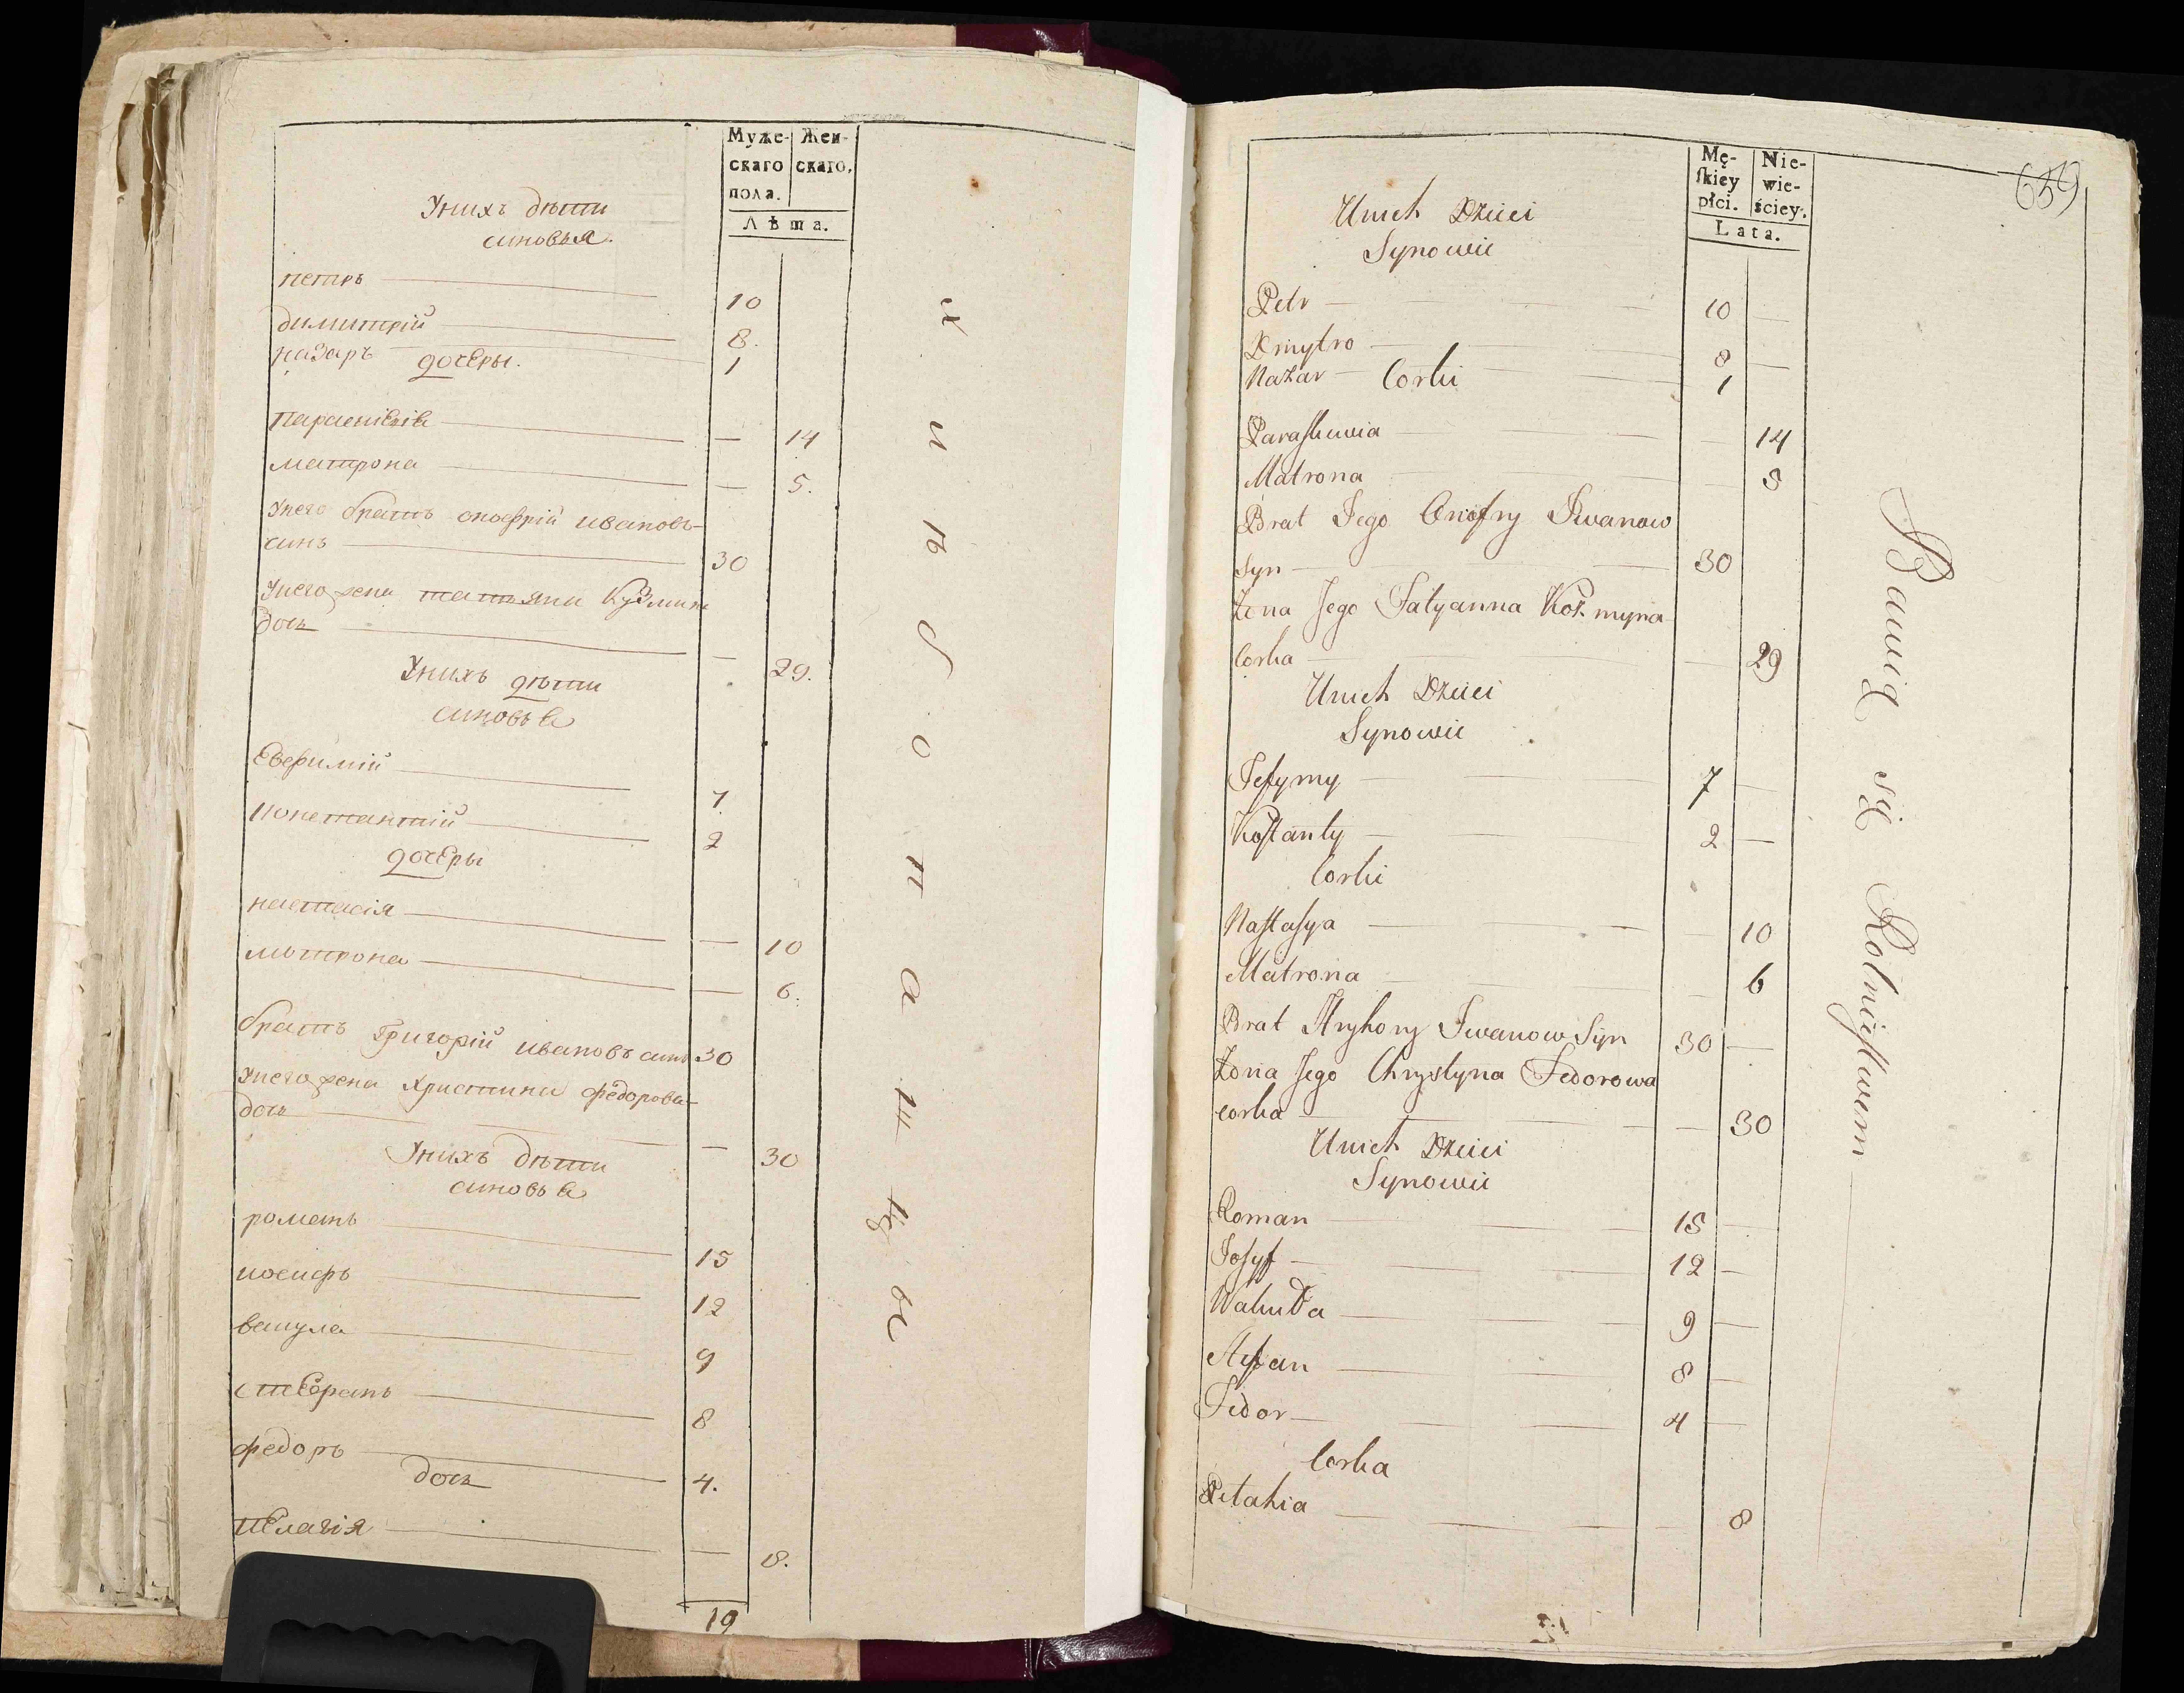 Муже- Жен-
скаго скаго.
пола.
Лѣта.
Унихъ дѣти
синовья.
петръ 10
димитрій 8.
назаръ 1
дочеры.
параскевія — 14
матрона — 5.
Унего братъ онофрій ивановъ
синъ 30
Унего жена татьяна Кузмина
дочь — 29.
Унихъ дѣти
синовья
Евфимій 7.
Константій 2
дочеры
настасія — 10
мотрона — 6.
братъ Григорій ивановъ синъ 30
Унего жена Христина федорова
дочь — 30
Унихъ дѣти
синовья
романъ 15
иосифъ 12
вакула 9
стефанъ 8
федоръ 4.
дочь
пелагія — 8.
19
659
Mę- Nie-
ſkiey wie-
płci. ściey.
Lata.
Unich Dzieci
Synowie
Petr 10 —
Dmytro 8 —
Nazar 1
Corki
Paraſkewia — 14
Matrona — 5
Brat Jego Onofry Iwanow
Syn 30
Żona Jego Tatyanna Kozmyna
Corka — 29
Unich Dzieci
Synowie
Jefymy 7 —
Koſtanty 2 —
Corki
Naſtaſya — 10
Matrona — 6
Brat Hryhory Iwanow Syn 30 —
Żona Jego Chrystyna Fedorowa
corka — 30
Unich Dzieci
Synowie
Roman 15 —
Joſyf 12 —
Wakuła 9 —
Stefan 8 —
Fedor 4 —
Corka
Pelahia — 8
Bawią się Rolnictwem